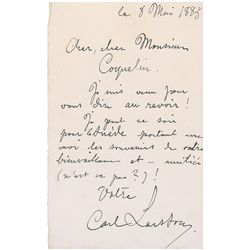 le 8 Mai 1885
Cher, cher Monsieur
Coquelin.
Je suis venu pour
vous dire au revoir!
Je parts ce soir
pour Suède portant avec
moi les souvenirs de votre
bienveillance et — amitiée
(n'est ce pas?)!
Votre
Carl Larsson